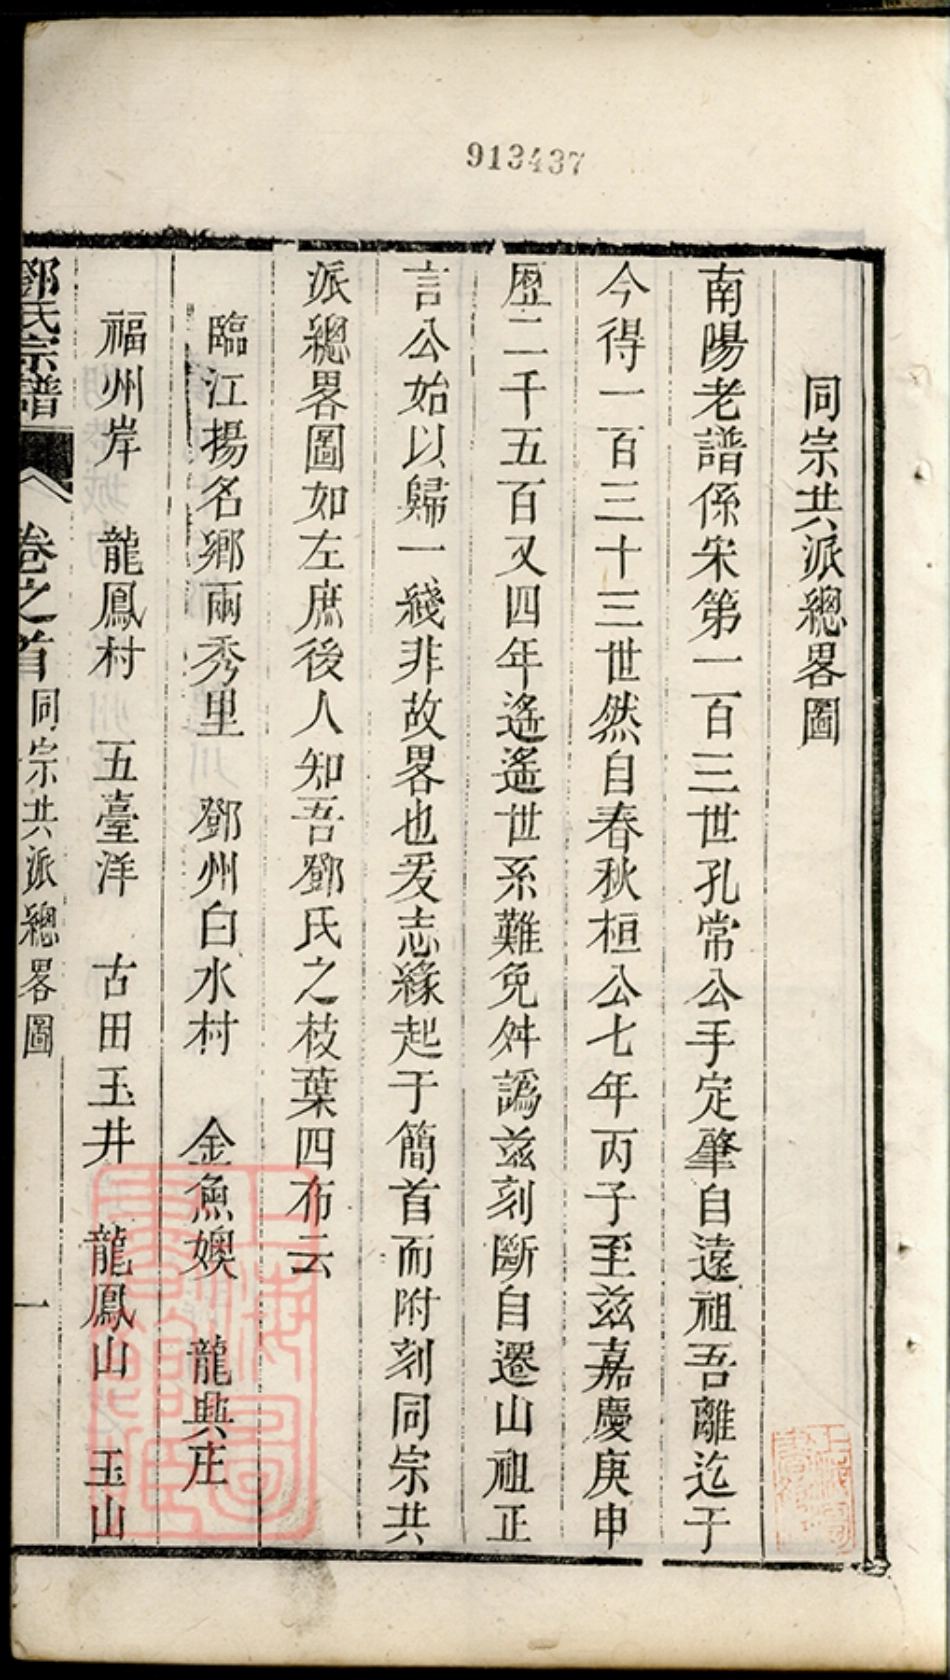 913437
同宗共派總畧圖
南陽老譜係宋第一百三世孔常公手定肇自遠祖吾離迄于
今得一百三十三世然自春秋桓公七年丙子至兹嘉慶庚申
歷二千五百又四年遙遙世系難免舛譌兹刻斷自遷山祖正
言公始以歸一綫非故畧也爰志緣起于簡首而附刻同宗共
派總畧圖如左庶後人知吾鄧氏之枝葉四布云
臨江揚名鄉雨秀里　鄧州白水村　金魚嬩　龍興庄
福州岸　龍鳳村　五臺洋　古田玉井　龍鳳山　玉山
鄧氏宗譜　卷之首　同宗共派總畧圖　一
上海圖書館藏